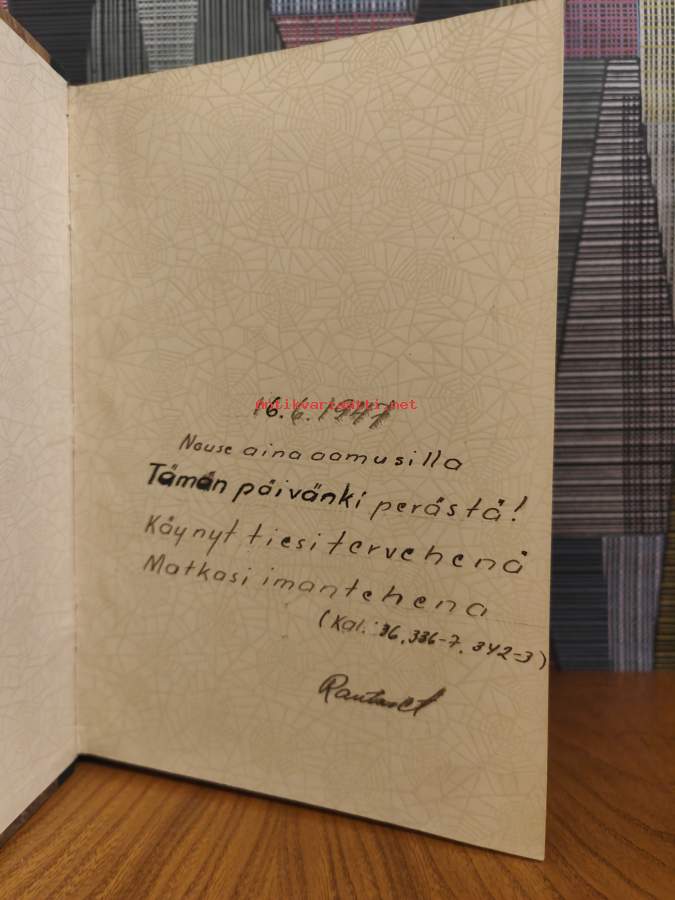 16.6.1947
Antikvariaatti.net
Nouse aina aamusilla
Tämän päivänki perästä!
Käynyt tiesi tervehenä
Matkasi imantehena
(Kal.: 36, 336-7, 342=3)